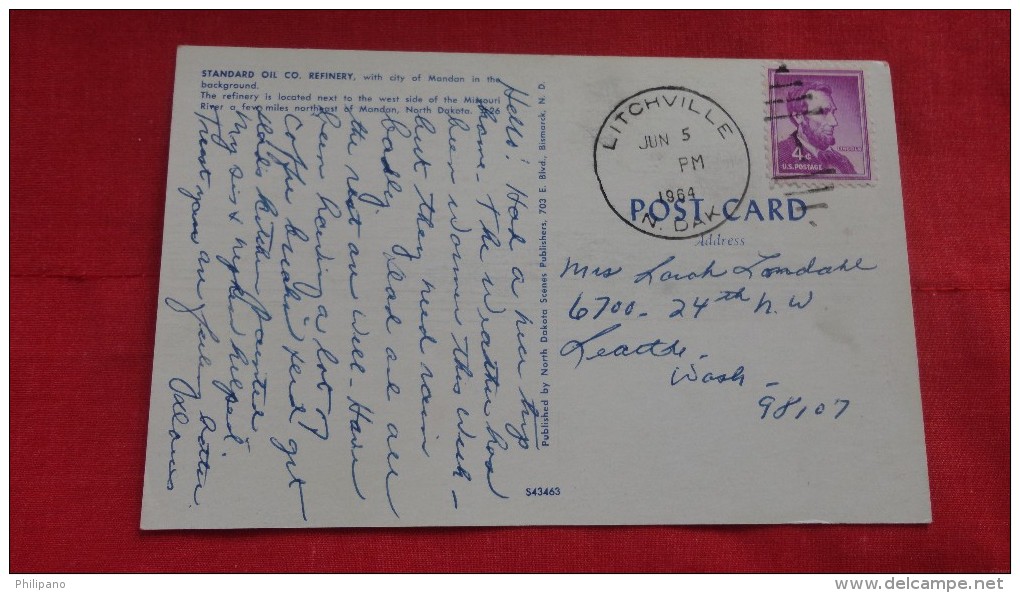 STANDARD OIL CO. REFINERY, with city of Mandan in the
background.
The refinery is located next to the west side of the Missouri
River a few miles northeast of Mandan, North Dakota.
Hello! Had a nice trip
home. The weather has
been warm this week -
but they need rain
badly. Dad and all
the rest are well - Have
been having a lot of
coffee breaks and got
kitchen painted
My sis & nephew helped.
Trust you are feeling better.
Published by North Dakota Scenes Publishers, 703 E. Blvd., Bismarck, N. D.
S43463
LITCHVILLE
JUN 5
PM
1964
N. DAK
4¢
U.S. POSTAGE
LINCOLN
POST CARD
Address
Mrs Sarah Lomdahl
6700 - 24th N.W
Seattle
Wash -
98,107
Philipano
www.delcampe.net